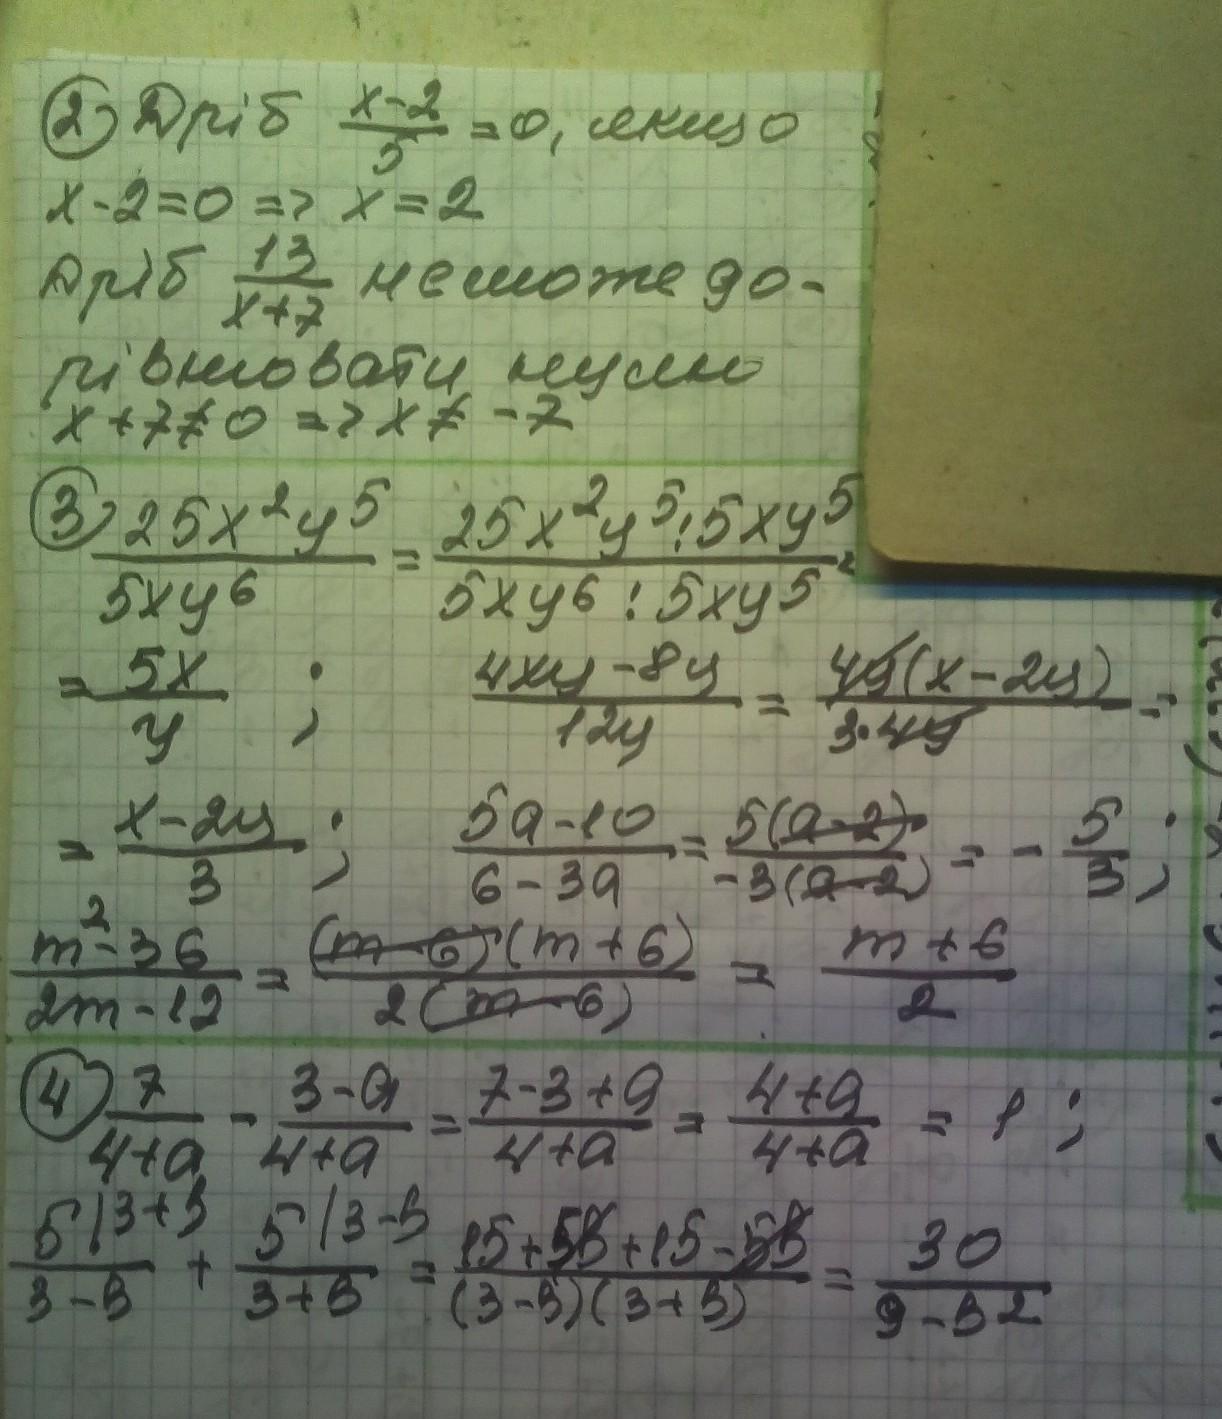 ② Дріб (x-2)/5 = 0, якщо
x-2=0 => x=2
Дріб 13/(x+7) не може до-
рівнювати нулю
x+7≠0 => x≠-7
③ 25x²y⁵/5xy⁶ = 25x²y⁵:5xy⁵/5xy⁶:5xy⁵ =
= 5x/y ; 4xy-8y/12y = 4y(x-2y)/3·4y =
= x-2y/3 ; 5a-10/6-3a = 5(a-2)/-3(a-2) = -5/3 ;
m²-36/2m-12 = (m-6)(m+6)/2(m-6) = m+6/2
④ 7/4+a - 3-a/4+a = 7-3+a/4+a = 4+a/4+a = 1 ;
5|3+в/3-в + 5|3-в/3+в = 15+5в+15-5в/(3-в)(3+в) = 30/9-в²